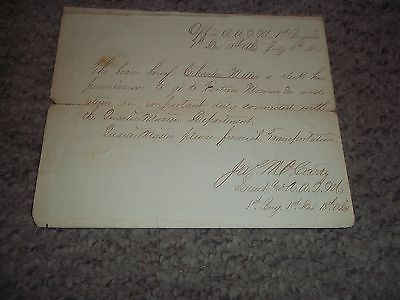 Office A.A.Q.M. 1st Brigade
1st Div 18th AC July 18th
The bearer hereof Charles Miller a clerk has
permission to go to Fortress Monroe Va and
return on important duty connected with
the Quarter Master Department.
Quarter Master please furnish Transportation
Jas McCarty
Lieut & A.A.Q.M
1st Brig. 1st Div 18th